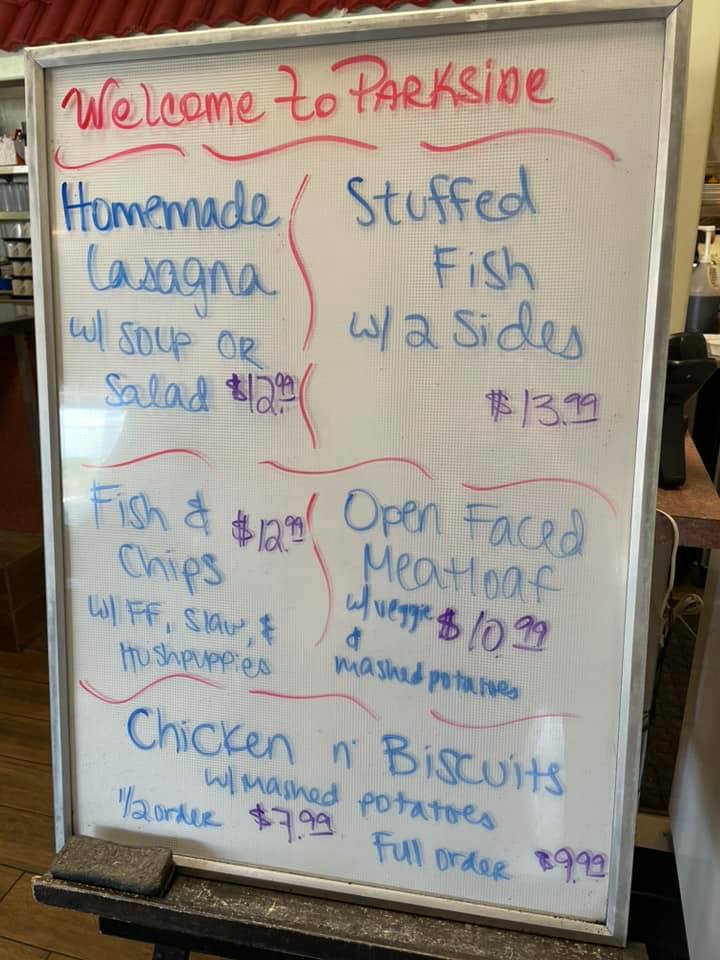 Welcome to PARKSIDE
Homemade
Lasagna
w/ SOUP OR
Salad $12.99
Stuffed
Fish
w/ 2 Sides
$13.99
Fish &
$12.99
Chips
w/ FF, Slaw, &
Hushpuppies
Open Faced
Meatloaf
w/ veggie $10.99
&
mashed potatoes
Chicken n' Biscuits
w/ mashed potatoes
1/2 order $7.99
Full order $9.99